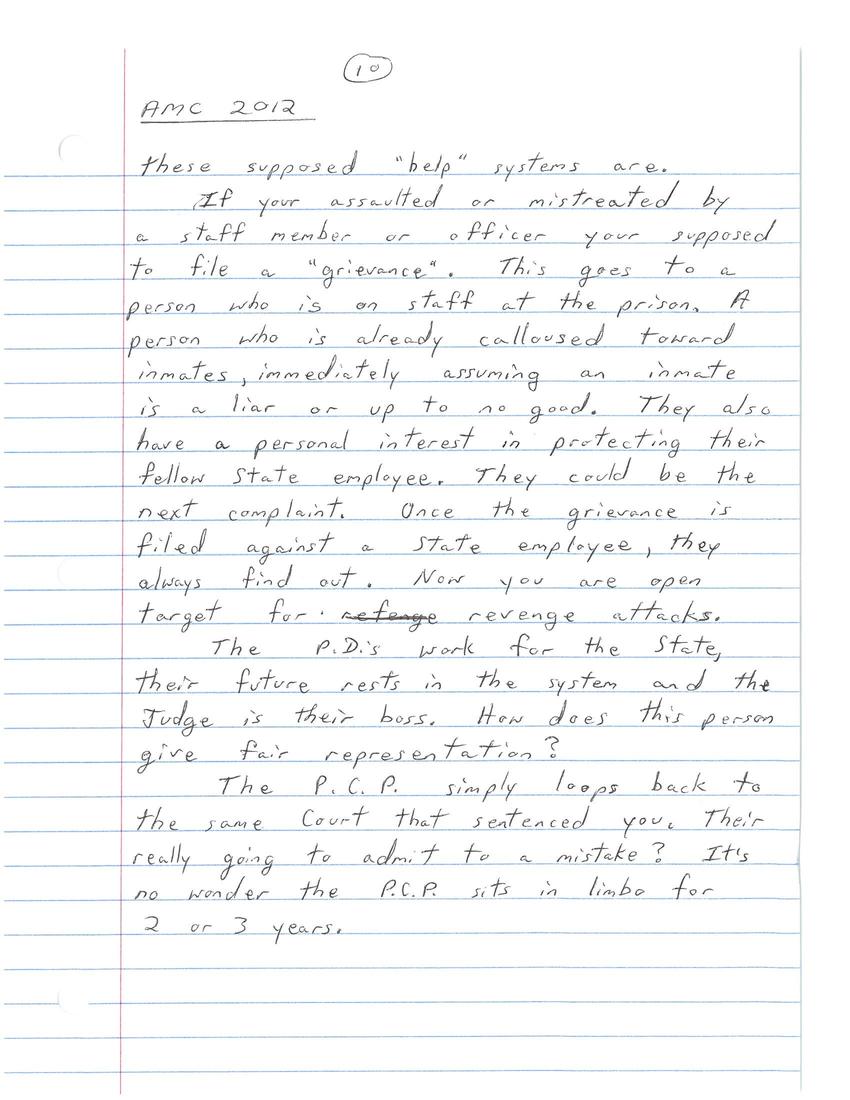 10
AMC 2012
these supposed "help" systems are.
If your assaulted or mistreated by
a staff member or officer your supposed
to file a "grievance". This goes to a
person who is on staff at the prison. A
person who is already calloused toward
inmates, immediately assuming an inmate
is a liar or up to no good. They also
have a personal interest in protecting their
fellow State employee. They could be the
next complaint. Once the grievance is
filed against a State employee, they
always find out. Now you are open
target for refenge revenge attacks.
The P.D.'s work for the State,
their future rests in the system and the
Judge is their boss. How does this person
give fair representation?
The P.C.P. simply loops back to
the same Court that sentenced you. Their
really going to admit to a mistake? It's
no wonder the P.C.P. sits in limbo for
2 or 3 years.